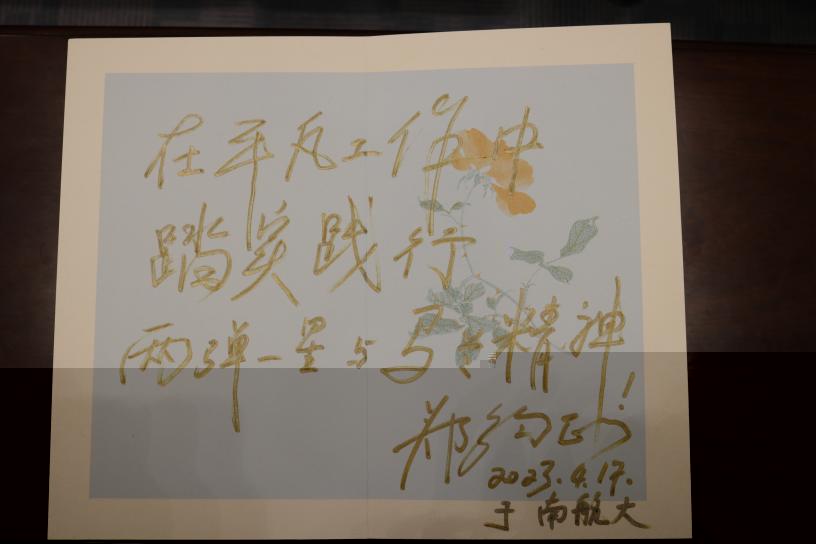 在平凡工作中
踏实践行
两弹一星与马兰精神!
郑钧正
2023.4.17.
于南航大